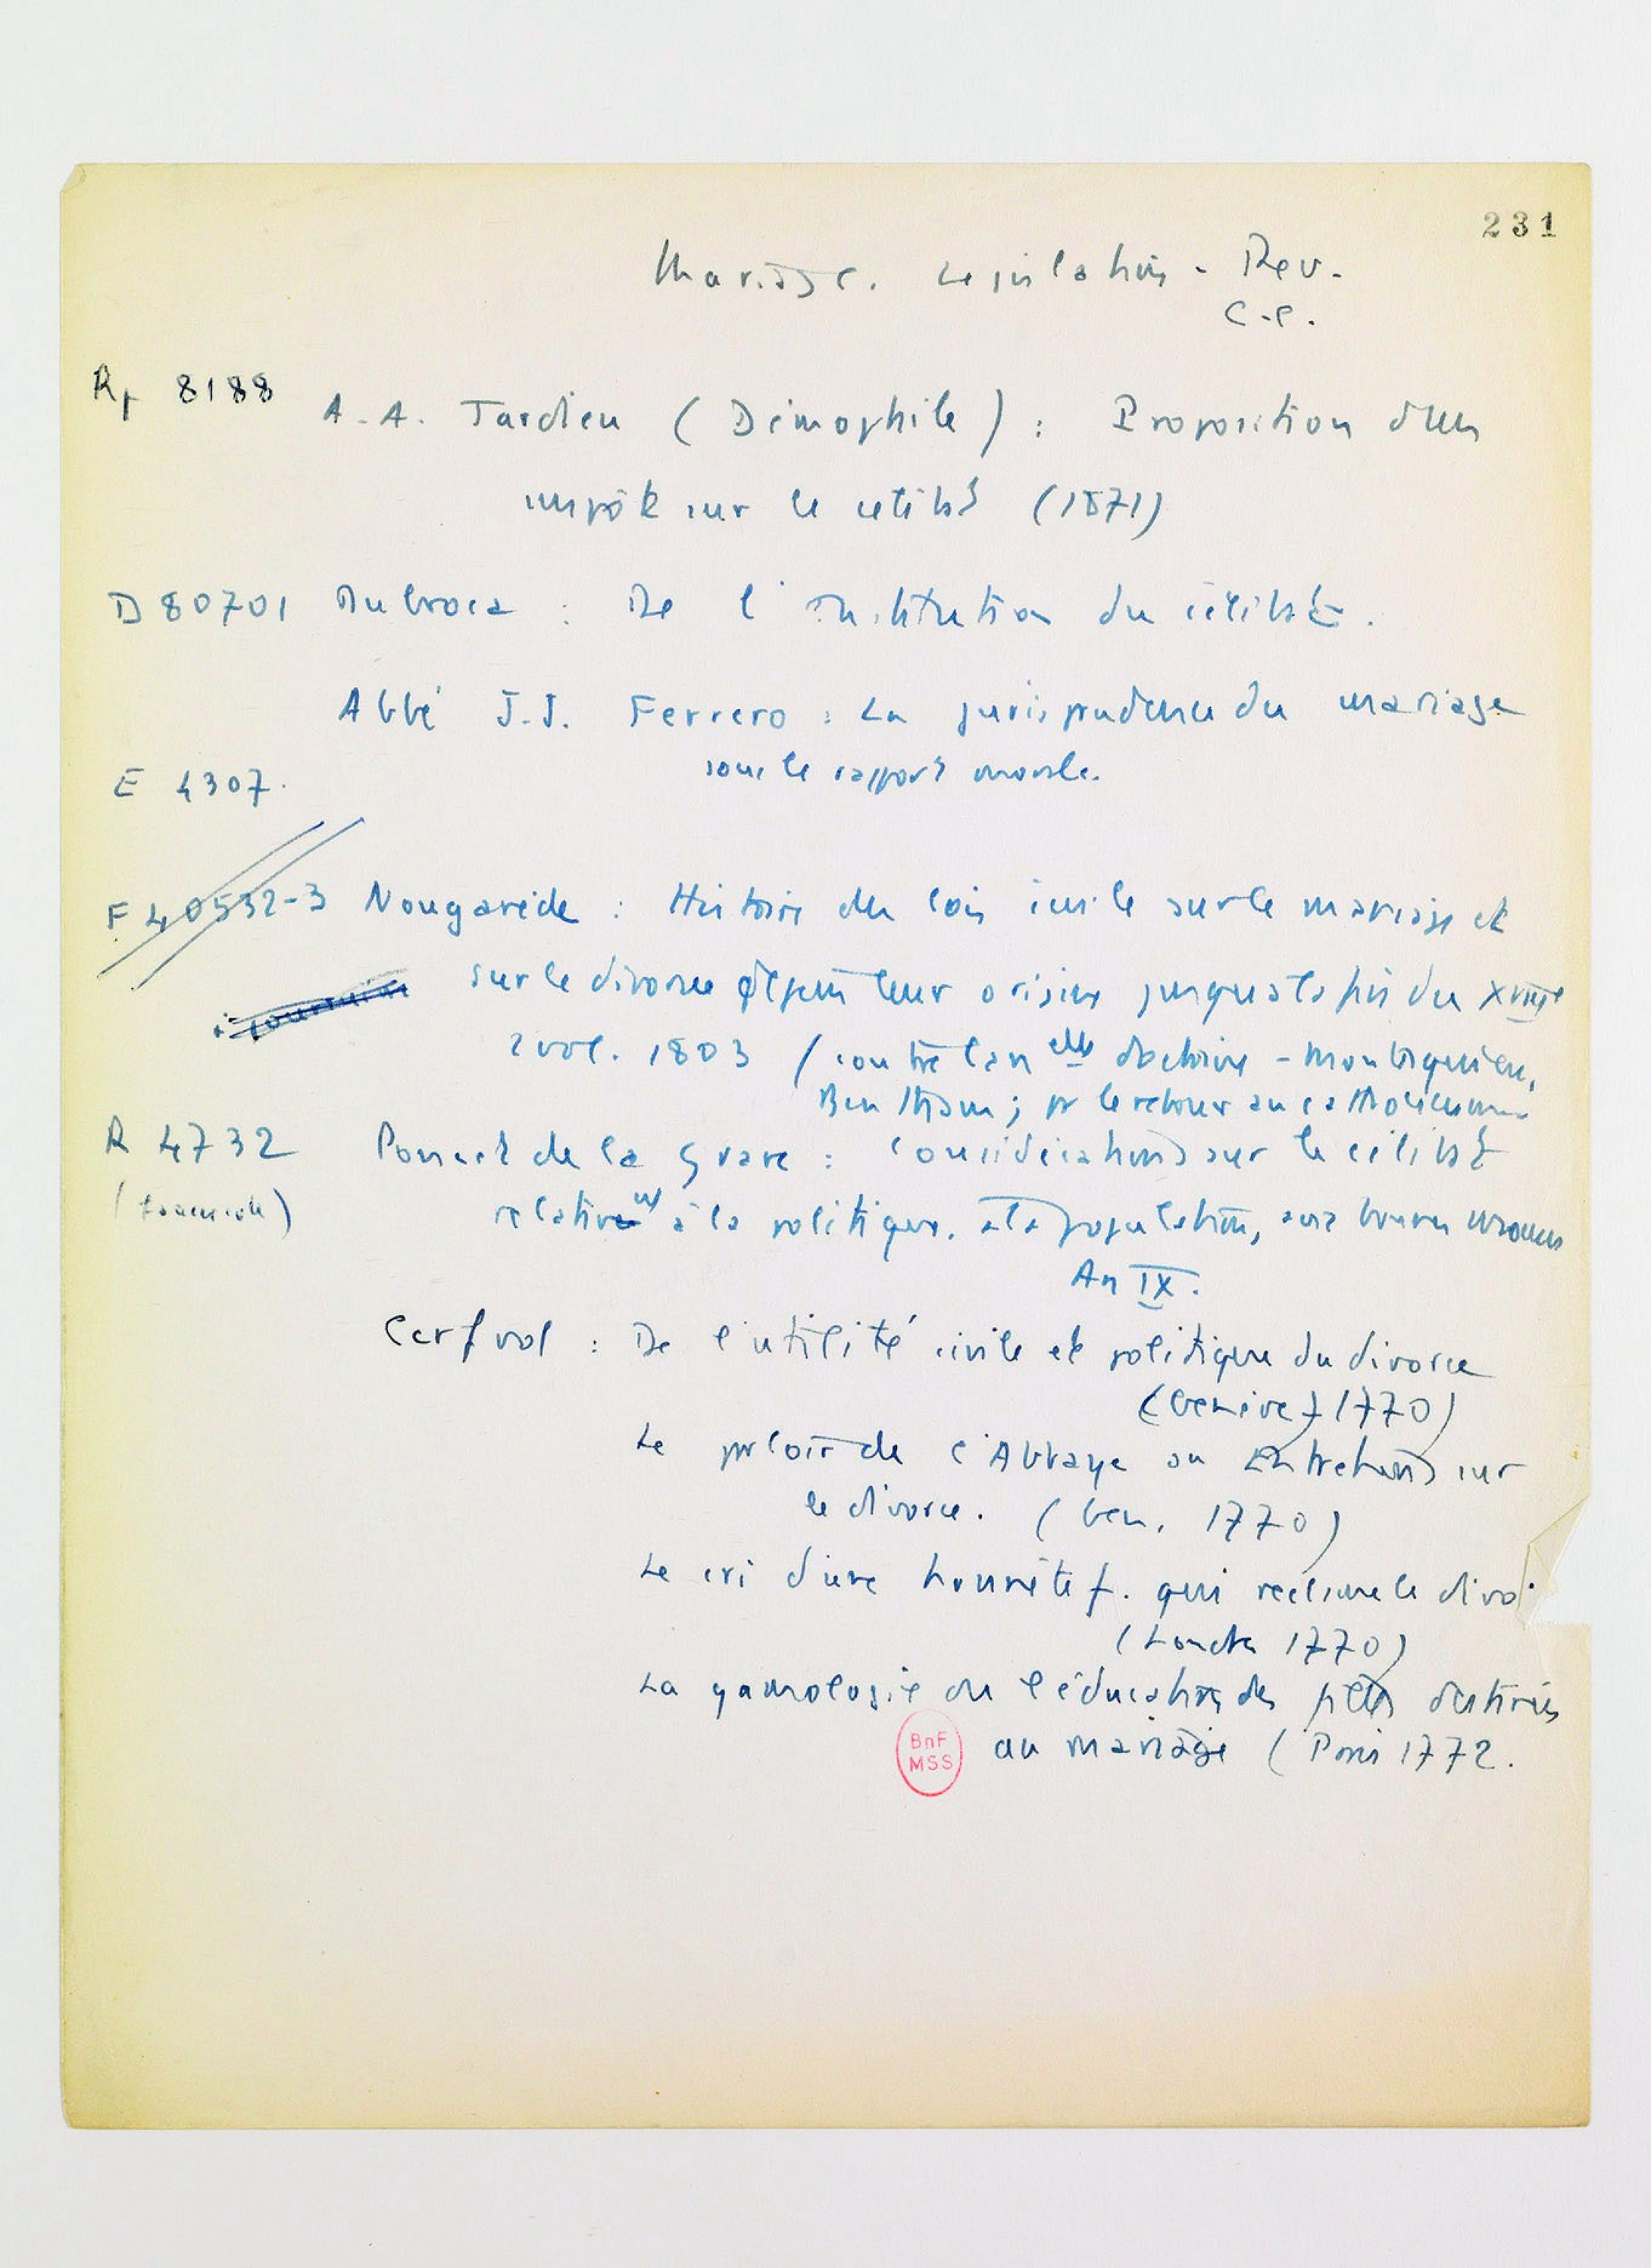 231
Mariage. Législation - Rev.
C.C.
Rp 8188
A.A. Tardieu (Démophile) : Proposition d'un
impôt sur le célibat (1871)
D 80701 Dubroca : De l'institution du célibat.
Abbé J.J. Ferrero : La jurisprudence du mariage
sous le rapport morale.
E 4307.
F 40532-3 Nougarède : Histoire des lois civile sur le mariage et
sur le divorce depuis leur origine jusqu'à la fin du XVIIIe
2 vol. 1803 (contre les nelles doctrines - Montesquieu,
Bentham ; pr le retour au catholicisme
R 4732 Poncet de la Grave : Considérations sur le célibat
relativt à la politique, à la population, aux bonnes moeurs
An IX.
Cerfvol : De l'utilité civile et politique du divorce
(Genève 1770)
Le parloir de l'Abbaye ou Entretiens sur
le divorce. (Gen. 1770)
Le cri d'une honnête f. qui réclame le divo
(Londres 1770)
La gamologie ou l'éducation des filles destinées
au mariage (Paris 1772.
BnF
MSS